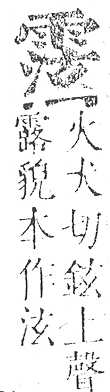 火犬切鉉上聲
露貌本作泫